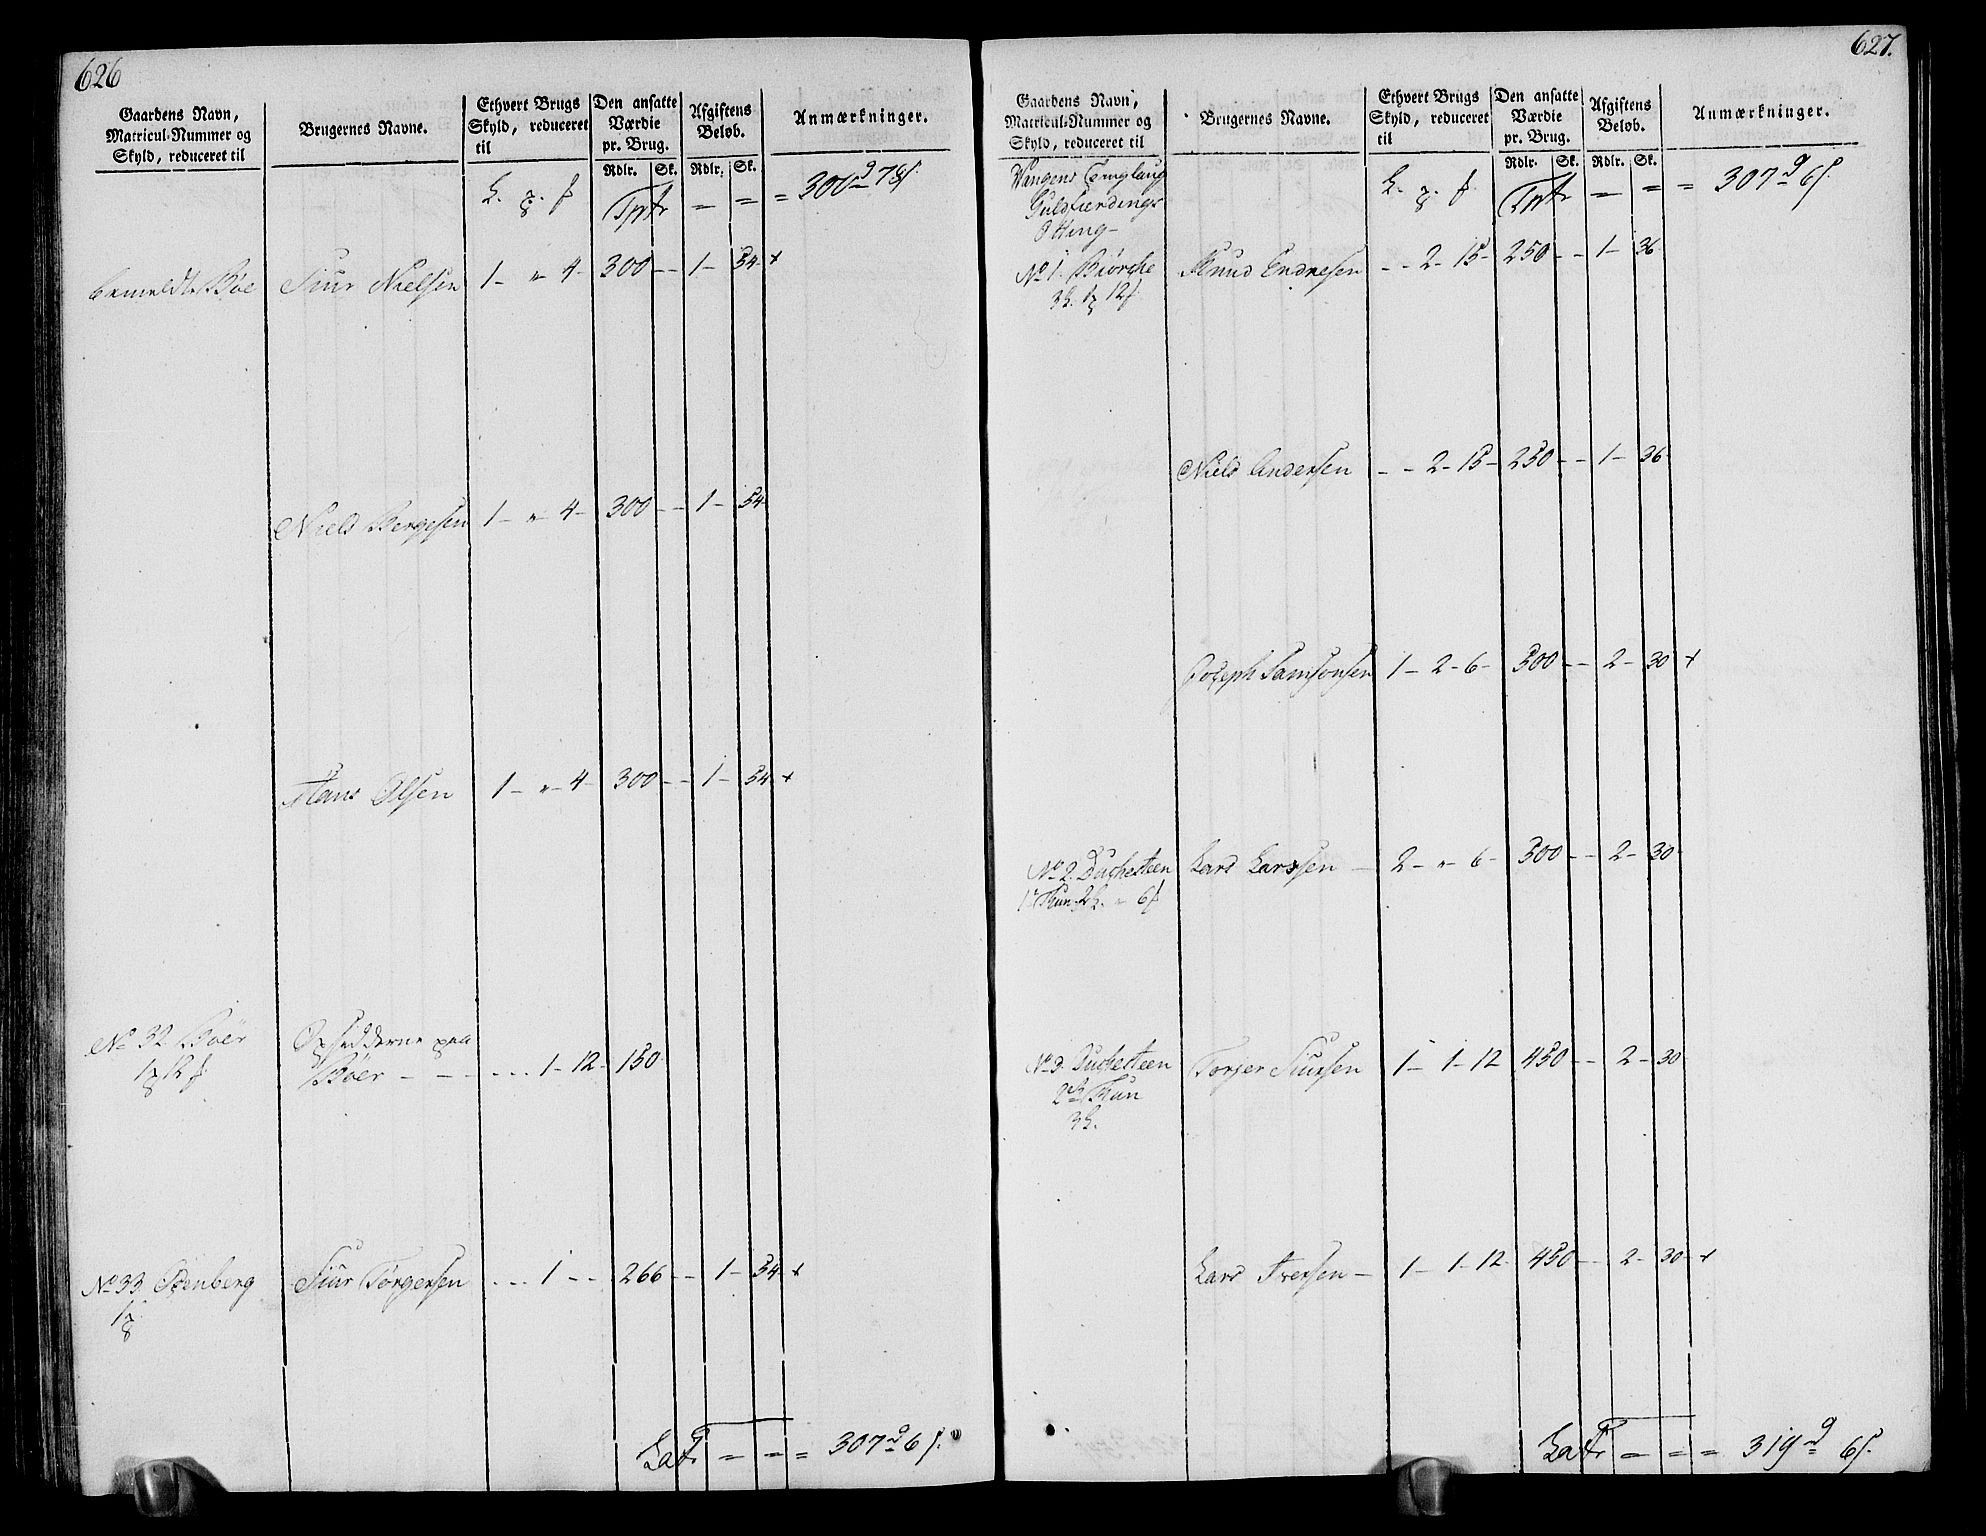 626
Gaardens Navn,
Matricul-Nummer og
Skyld, reduceret til
Brugernes Navne.
Ethvert Brugs
Skyld, reduceret
til
Den ansatte
Værdie
pr. Brug.
Rdlr. Sk.
Afgiftens
Beløb.
Rdlr. Sk.
Anmærkninger.
Tptr = = = 300 78
bemeldte Bøe Siur Nielsen 1 - " - 4 - 300 - - 1 - 54 +
Niels Bergesen 1 - " - 4 - 300 - - 1 - 54
Hans Olsen 1 - " - 4 - 300 - - 1 - 54 +
No 32 Bøer Opsidderne paa
Bøer - - - - - - 1 - 12 - 150
No 33. Steenberg Siur Torgersen - - - 1 - - 266 - - 1 - 54 +
Latr = = = 307 6
627.
Gaardens Navn,
Matricul-Nummer og
Skyld, reduceret til
Brugernes Navne.
Ethvert Brugs
Skyld, reduceret
til
Den ansatte
Værdie
pr. Brug.
Rdlr. Sk.
Afgiftens
Beløb.
Rdlr. Sk.
Anmærkninger.
Wangens
Tptr = = = 307 6
Guldfierdings
Otting
No 1. Biørche Knud Endresen - - 2 - 15 - 250 - - 1 - 36
Niels Andersen - - 2 - 15 - 250 - - 1 - 36
Joseph Samsonsen 1 - 2 - 6 - 500 - - 2 - 30 +
No 2. Duchesteen Lars Larssen - 2 - " - 6 - 500 - - 2 - 30
1te Tun 2 " 6
No 3. Duchesteen Torjer Siursen 1 - 1 - 12 450 - - 2 - 30
2den Tun
Lars Iversen - 1 - 1 - 12 - 450 - - 2 - 30 +
Latr = = = 319 6